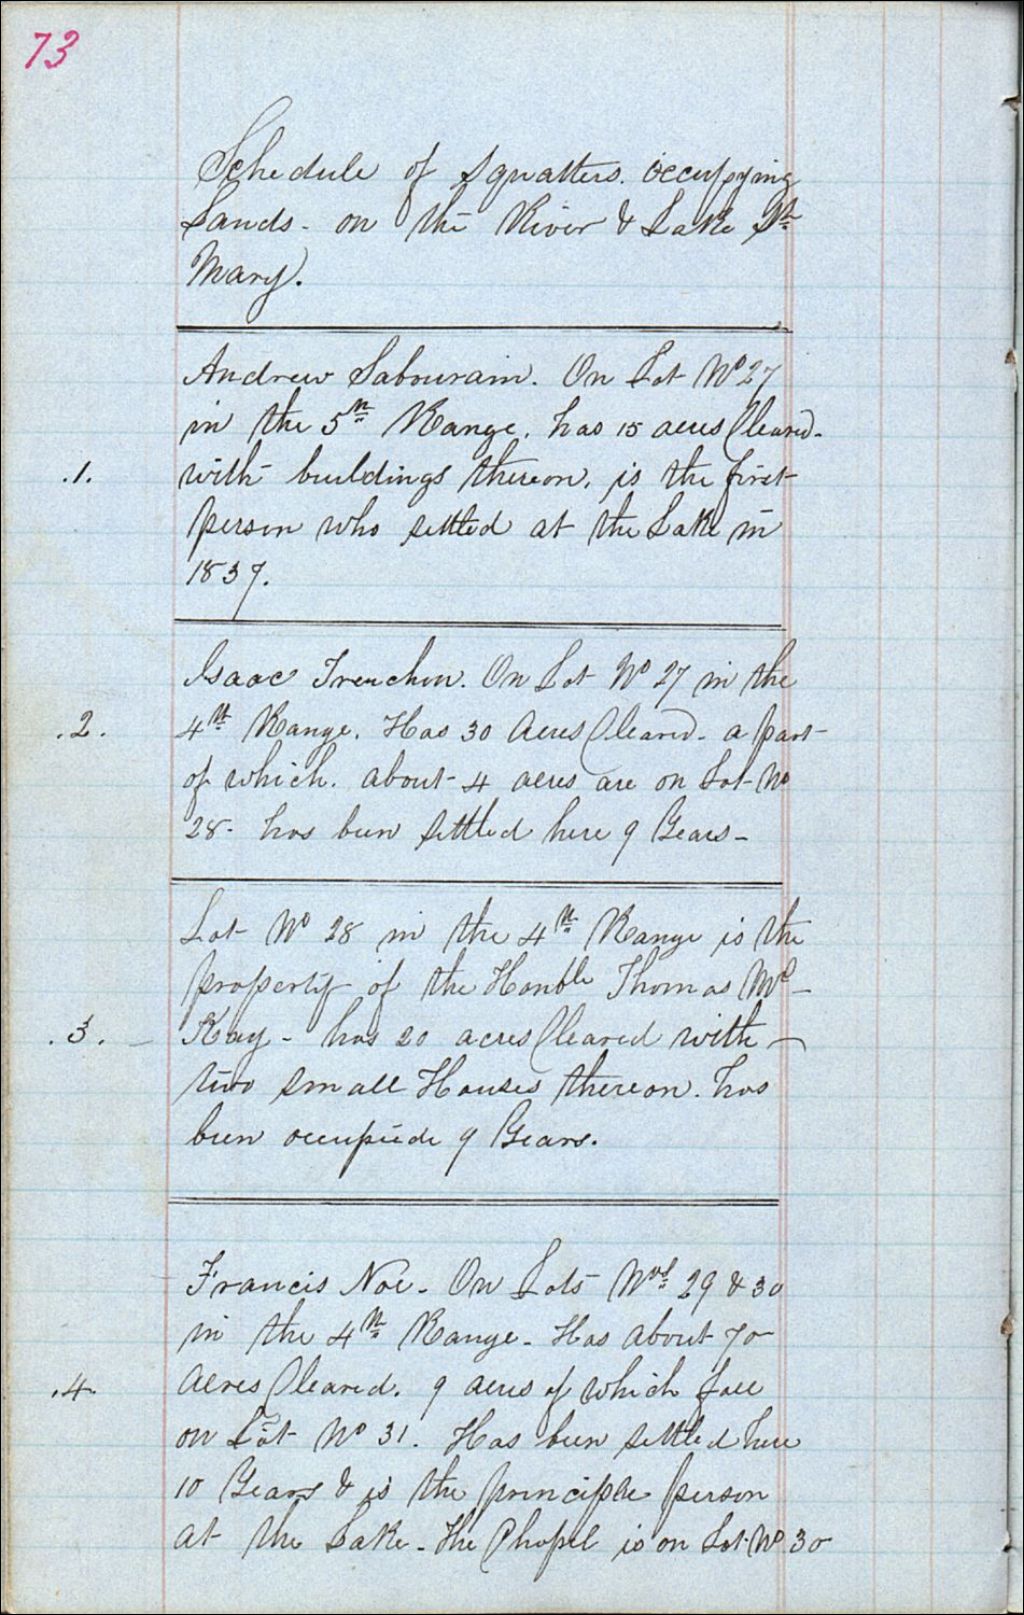 73
Schedule of Squatters. occupying
Lands - on the River & Lake St
Mary.
Andrew Sabourain. On Lot No 27
in the 5th Range. has 15 acres Cleared -
.1. with buildings thereon. is the first
person who settled at the Lake in
1837.
Isaac Frenchon. On Lot No 27 in the
.2. 4th Range. Has 30 Acres Cleared - a part
of which. about 4 acres are on Lot No
28 - has been settled here 9 Years -
Lot No 28 in the 4th Range is the
property of the Honble Thomas Mc -
.3. Kay - has 20 acres Cleared with -
two small Houses thereon. has
been occupiede 9 Years.
Francis Noe - On Lots Nos 29 & 30
in the 4th Range - Has about 70
.4. Acres Cleared. 9 acres of which fall
on Lot No 31. Has been settled here
10 Years & is the principle person
at the Lake - The Chapel is on Lot No 30